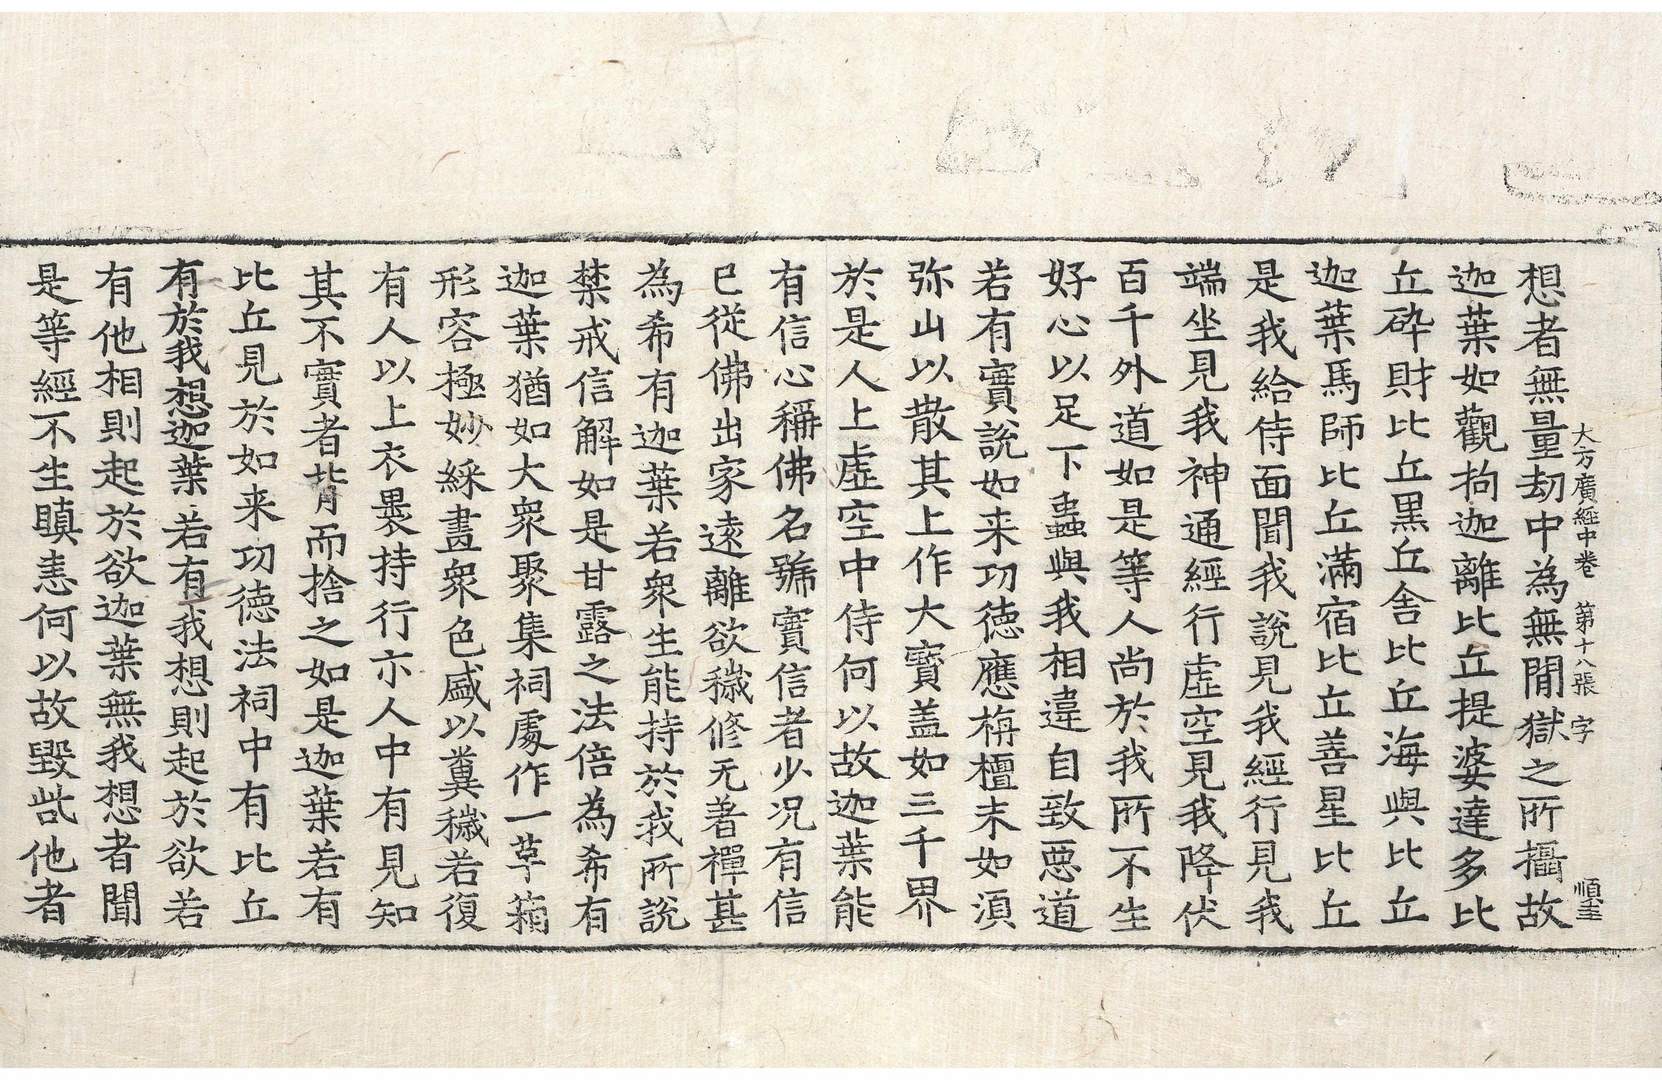 大方廣經中卷 第十八張 字 順圭
想者無量劫中為無間獄之所攝故
迦葉如觀拘迦離比丘提婆達多比
丘碎財比丘黒丘舎比丘海與比丘
迦葉馬師比丘滿宿比丘善星比丘
是我給侍面聞我說見我經行見我
端坐見我神通經行虛空見我降伏
百千外道如是等人尚於我所不生
好心以足下蟲與我相違自致惡道
若有實說如来功徳應栴檀末如湏
弥山以散其上作大寶盖如三千界
於是人上虛空中侍何以故迦葉能
有信心稱佛名號寶信者少况有信
已從佛出家逺離欲穢修无著禪甚
為希有迦葉若衆生能持於我所說
禁戒信解如是甘露之法倍為希有
迦葉猶如大衆聚集祠處作一草
形容極妙綵畫衆色盛以糞穢若復
有人以上衣褁持行亦人中有見知
其不實者背而捨之如是迦葉若有
比丘見於如来功徳法祠中有比丘
有於我想迦葉若有我想則起於欲若
有他相則起於欲迦葉無我想者聞
是等經不生瞋恚何以故毀呰他者